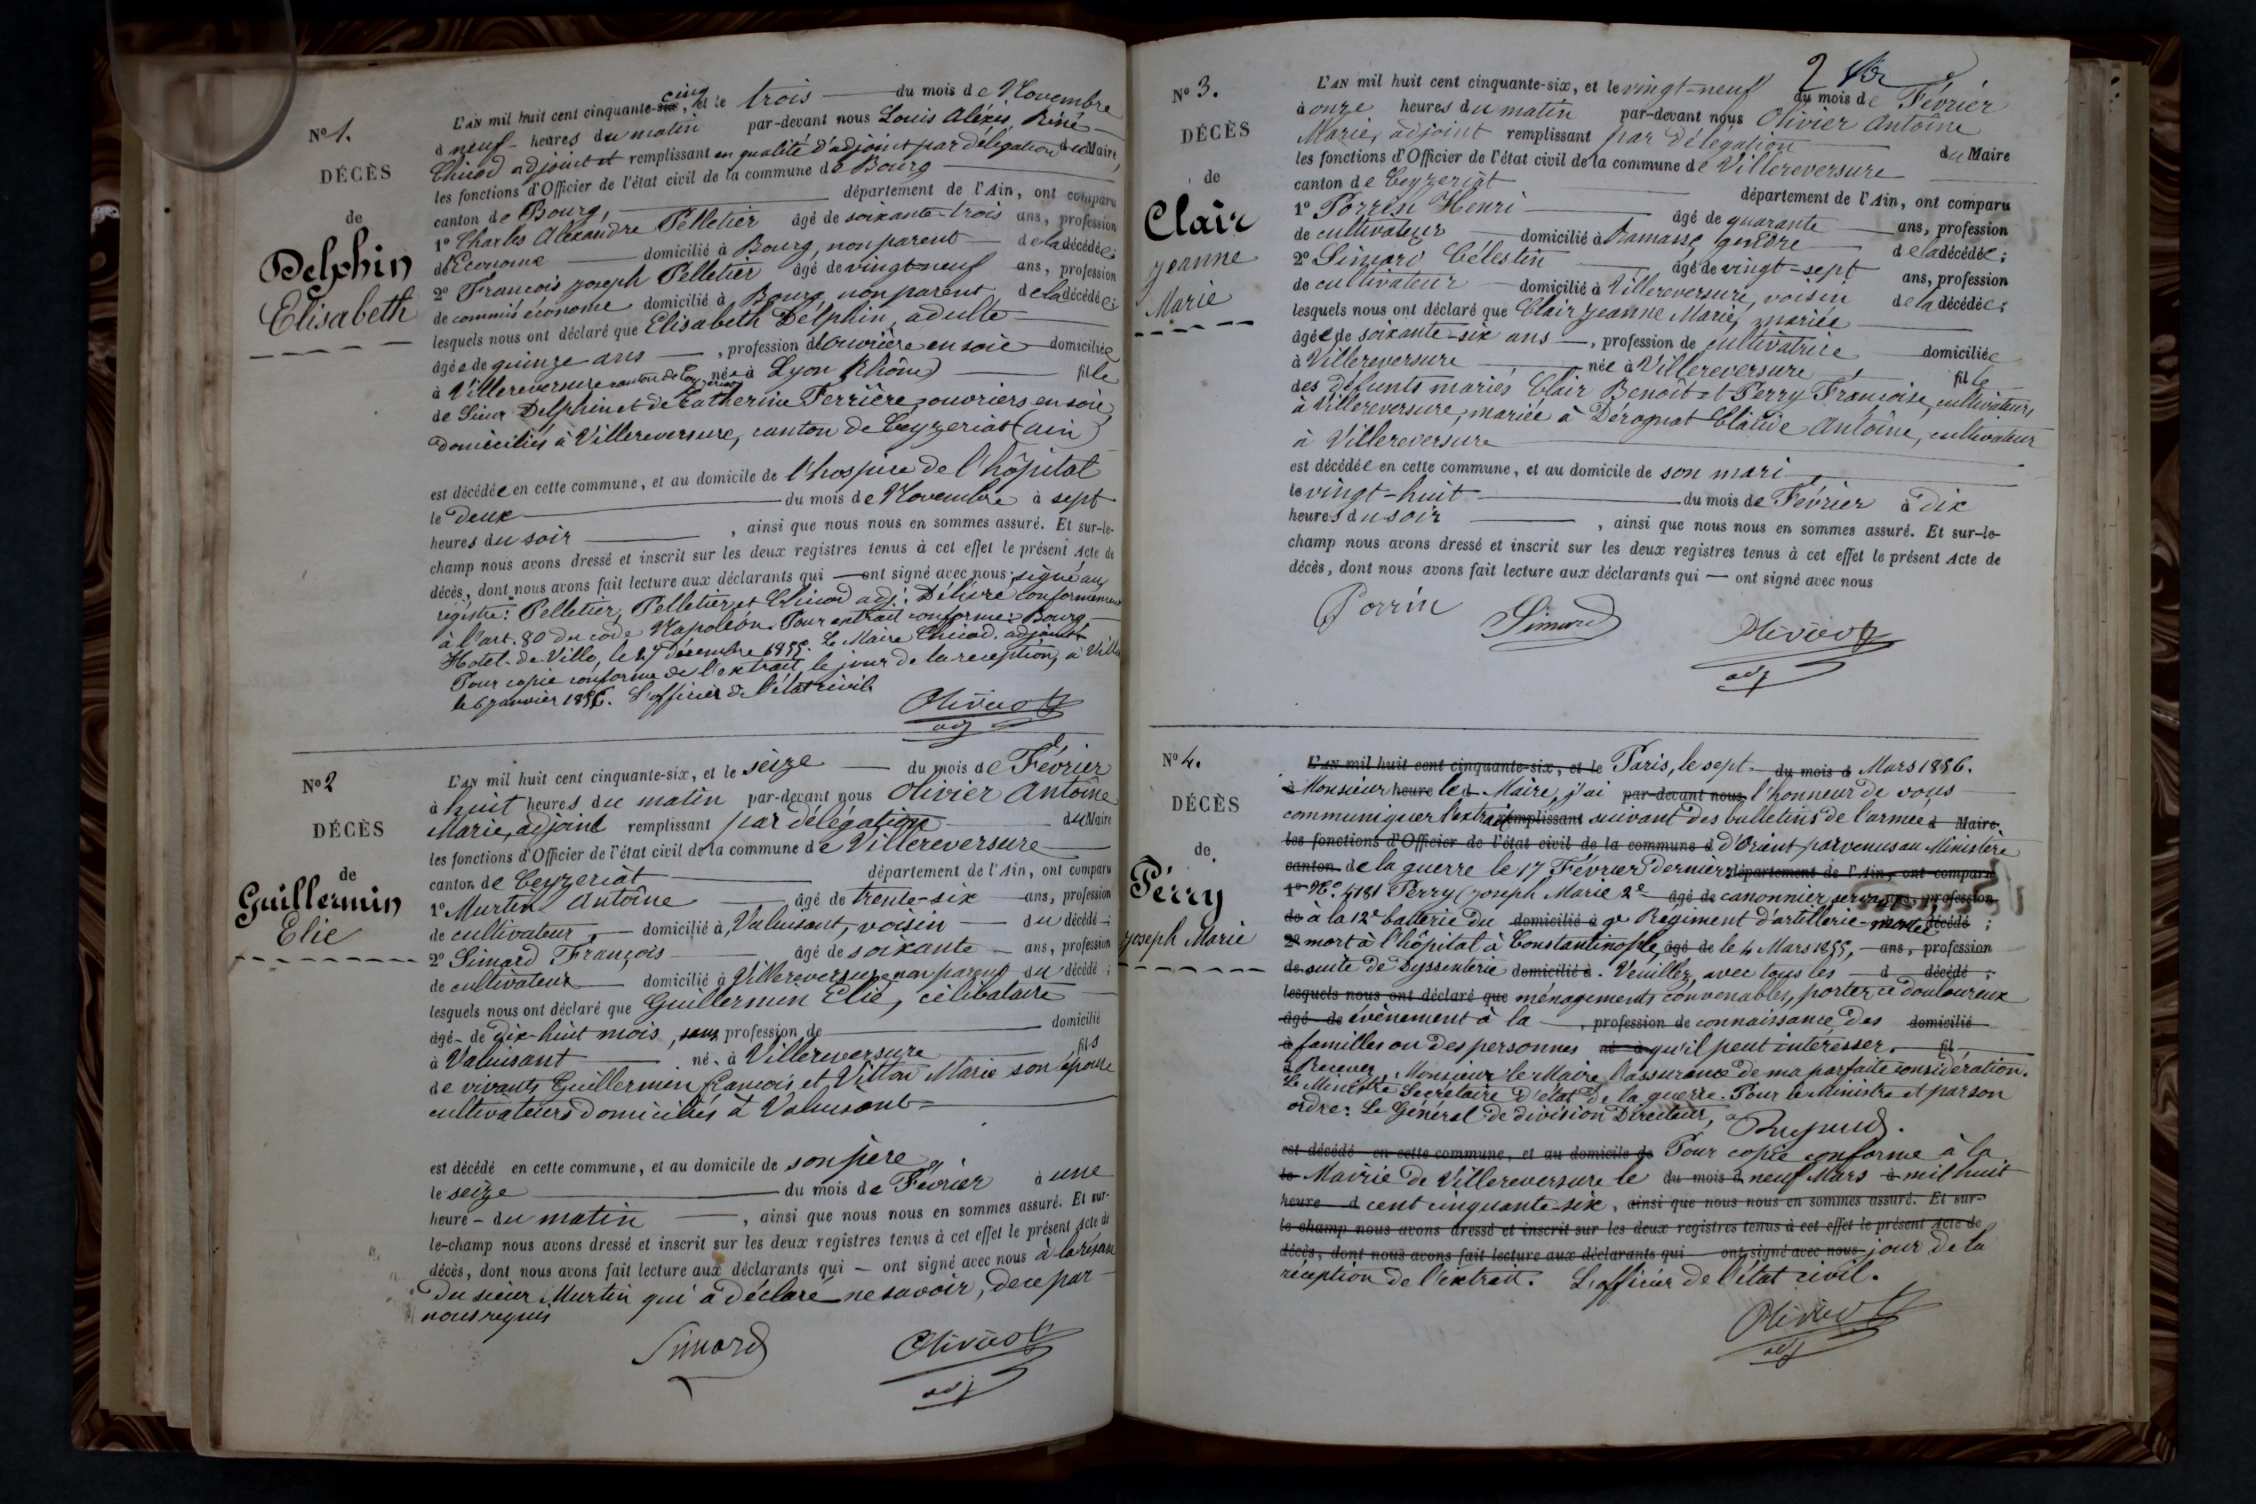 N° 1.
DÉCÈS
de
Delphin
Elisabeth
L'AN mil huit cent cinquante-six, cinq et le trois du mois de Novembre
à neuf heures du matin par-devant nous Louis Aléxis Réné
Chicod adjoint et remplissant en qualité d'adjoint par délégation du Maire,
les fonctions d'Officier de l'état civil de la commune de Bourg
canton de Bourg, département de l'Ain, ont comparu
1° Charles Alexandre Pelletier âgé de soixante-trois ans, profession
d'Econome domicilié à Bourg, non parent de la décédée;
2° François Joseph Pelletier âgé de vingt-neuf ans, profession
de commis économe domicilié à Bourg, non parent de la décédée;
lesquels nous ont déclaré que Elisabeth Délphin, adulte
âgée de quinze ans, profession d'ouvrière en soie domiciliée
à Villereversure canton de Ceyzeriat née à Lyon (Rhône) fille
de Sieur Delphin et de Catherine Ferrière, ouvriers en soie,
domiciliés à Villereversure, canton de Ceyzeriat (ain)
est décédée en cette commune, et au domicile de l'hospice de l'hôpital
le deux du mois de Novembre à sept
heures du soir, ainsi que nous nous en sommes assuré. Et sur-le-
champ nous avons dressé et inscrit sur les deux registres tenus à cet effet le présent Acte de
décès, dont nous avons fait lecture aux déclarants qui ont signé avec nous; signé aux
régistre: Pelletier, Pelletier et Chicod adj: Délivré conformément
à l'art. 80 du code Napoléon. Pour extrait conforme: Bourg,
Hotel-de-Ville, le 27 décembre 1855. Le Maire Chicod. adjoint
Pour copie conforme de l'extrait, le jour de la reception, à Viller
le 6 janvier 1856. L'officier de l'état civil.
Olivier
adj
N° 2
DÉCÈS
de
Guillermin
Elie
L'AN mil huit cent cinquante-six, et le seize du mois de Février
à huit heures du matin par-devant nous Olivier Antoîne
Marie, adjoint remplissant par délégation du Maire
les fonctions d'Officier de l'état civil de la commune de Villereversure
canton de Ceyzeriat département de l'Ain, ont comparu
1° Murtin Antoîne âgé de trente-six ans, profession
de cultivateur, domicilié à Valuisant, voisin du décédé;
2° Simard François âgé de soixante ans, profession
de cultivateur domicilié à Villereversure non parent du décédé;
lesquels nous ont déclaré que Guillermin Elie, célibataire
âgé de dix-huit mois, sans profession de domicilié
à Valuisant né à Villereversure fils
de vivants Guillermin francois et Vitton Marie son épouse
cultivateurs domiciliés à Valuisant
est décédé en cette commune, et au domicile de son père
le seize du mois de Février à une
heure du matin, ainsi que nous nous en sommes assuré. Et sur-
le-champ nous avons dressé et inscrit sur les deux registres tenus à cet effet le présent Acte de
décès, dont nous avons fait lecture aux déclarants qui ont signé avec nous à la réserve
du sieur Murtin qui a déclaré ne savoir, de ce par
nous requis
Simard
Olivier
adj
2
N° 3.
DÉCÈS
de
Clair
Jeanne
Marie
L'AN mil huit cent cinquante-six, et le vingt-neuf du mois de Février
à onze heures du matin par-devant nous Olivier Antoîne
Marie, adjoint remplissant par délégation du Maire
les fonctions d'Officier de l'état civil de la commune de Villereversure
canton de Ceyzeriat département de l'Ain, ont comparu
1° Porrin Henri âgé de quarante ans, profession
de cultivateur domicilié à Ramasse, gendre de la décédée;
2° Simard Célestin âgé de vingt-sept ans, profession
de cultivateur domicilié à Villereversure, voisin de la décédée;
lesquels nous ont déclaré que Clair Jeanne Marie, mariée
âgée de soixante-six ans, profession de cultivatrice domiciliée
à Villereversure née à Villereversure fille
des défunts mariés Clair Benoît et Perry Françoise, cultivateurs
à Villereversure, mariée à Dérognat Claude Antoîne, cultivateur
à Villereversure
est décédée en cette commune, et au domicile de son mari
le vingt-huit du mois de Février à dix
heures du soir, ainsi que nous nous en sommes assuré. Et sur-le-
champ nous avons dressé et inscrit sur les deux registres tenus à cet effet le présent Acte de
décès, dont nous avons fait lecture aux déclarants qui ont signé avec nous
Porrin
Simard
Olivier
adj
N° 4.
DÉCÈS
de
Pérry
Joseph Marie
L'AN mil huit cent cinquante-six, et le Paris, le sept du mois d Mars 1856.
à Monsieur heure le d Maire, j'ai par-devant nous l'honneur de vous
communiquer l'extrait remplissant suivant des bulletins de l'armée d Maire
les fonctions d'Officier de l'état civil de la commune d d'Orient parvenus au Ministère
canton de la guerre le 17 Février dernier: département de l'Ain, ont comparu
1° N° 4181 Perry (Joseph Marie 2e âgé de canonnier servant ans, profession
de à la 12e batterie du domicilié à 9e Régiment d'artillerie décédé;
2° mort à l'hôpital à Constantinople, âgé de le 4 Mars 1855, ans, profession
de suite de Dyssenterie domicilié à. Veuillez, avec tous les d décédé;
lesquels nous ont déclaré que ménagements convenables, porter ce douloureux
âgé de évènement à la, profession de connaissance des domicilié
à familles ou des personnes né à qu'il peut interesser. fil
d Recevez, Monsieur le Maire, l'assurance de ma parfaite considération.
Le Ministre Secrétaire d'état de la guerre. Pour le Ministre et par son
ordre: Le Général de division Directeur,
est décédé en cette commune, et au domicile de Pour copie conforme à la
le Mairie de Villereversure le du mois d neuf Mars à mil huit
heure d cent cinquante six, ainsi que nous nous en sommes assuré. Et sur-
le champ nous avons dressé et inscrit sur les deux registres tenus à cet effet le présent Acte de
décès, dont nous avons fait lecture aux déclarants qui ont signé avec nous jour de la
réception de l'extrait. L'officier de l'état civil.
Olivier
adj